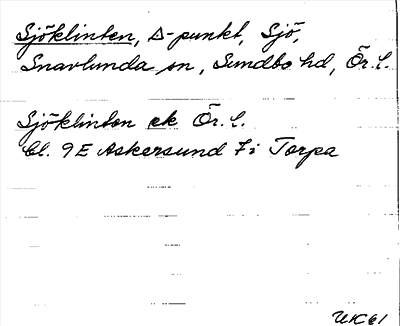 Sjöklinten, △-punkt, Sjö,
Snavlunda sn, Sundbo hd, Ör. l.
Sjöklinten ek Ör. l.
Bl. 9E Askersund 7i Torpa
UK61